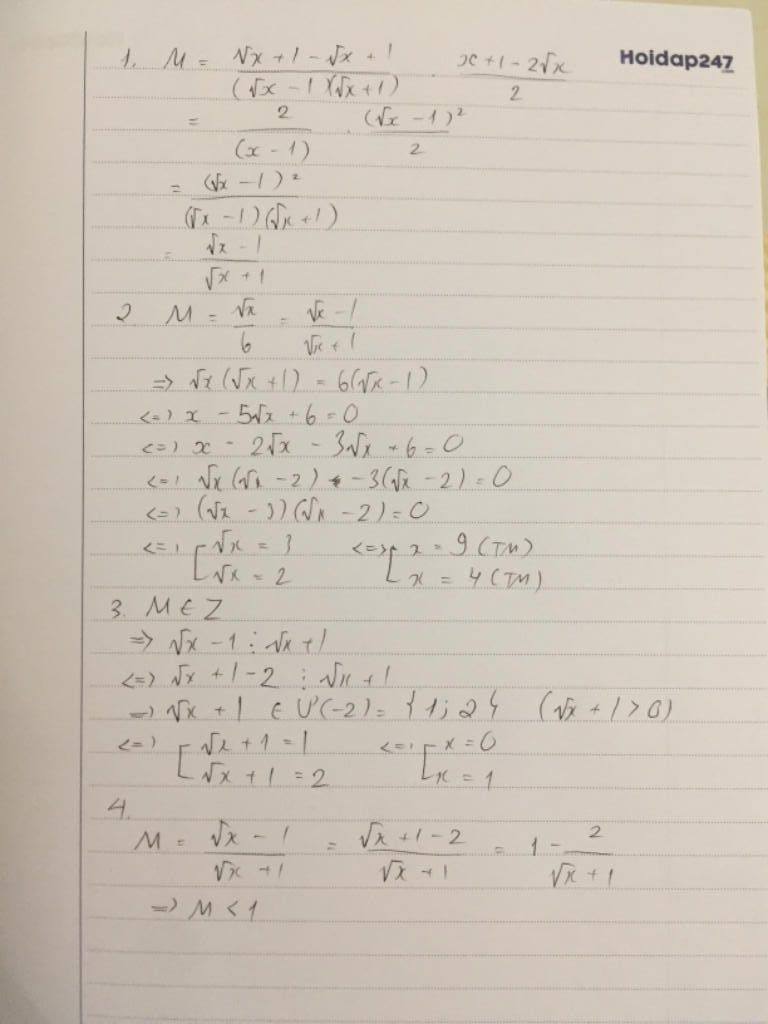 Hoidap247
1. M = (√x + 1 - √x + 1)/((√x - 1)(√x + 1)) . (x + 1 - 2√x)/2
= 2/(x - 1) . (√x - 1)²/2
= (√x - 1)²/((√x - 1)(√x + 1))
= (√x - 1)/(√x + 1)
2 M = √x/6 = (√x - 1)/(√x + 1)
=> √x(√x + 1) = 6(√x - 1)
<=> x - 5√x + 6 = 0
<=> x - 2√x - 3√x + 6 = 0
<=> √x(√x - 2) - 3(√x - 2) = 0
<=> (√x - 3)(√x - 2) = 0
<=> [ √x = 3 <=> [ x = 9 (TM)
√x = 2 x = 4 (TM)
3. M ∈ Z
=> √x - 1 ⋮ √x + 1
<=> √x + 1 - 2 ⋮ √x + 1
=> √x + 1 ∈ Ư(-2) = {1; 2} (√x + 1 > 0)
<=> [ √x + 1 = 1 <=> [ x = 0
√x + 1 = 2 x = 1
4.
M = (√x - 1)/(√x + 1) = (√x + 1 - 2)/(√x + 1) = 1 - 2/(√x + 1)
=> M < 1